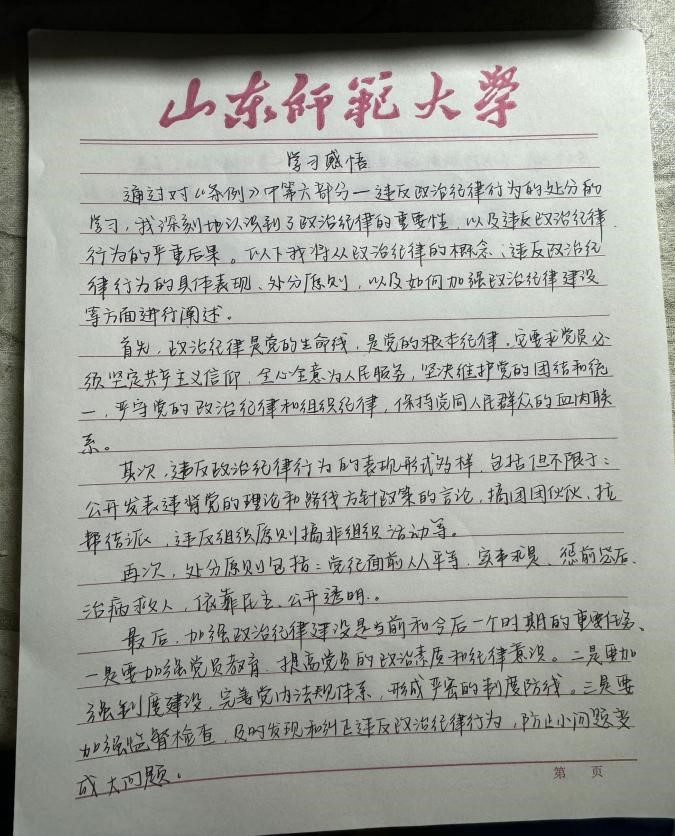 山东师范大学
学习感悟
通过对《条例》中第六部分—违反政治纪律行为的处分的
学习，我深刻地认识到了政治纪律的重要性，以及违反政治纪律
行为的严重后果。以下我将从政治纪律的概念、违反政治纪
律行为的具体表现、处分原则，以及如何加强政治纪律建设
等方面进行阐述。
首先，政治纪律是党的生命线，是党的根本纪律。它要求党员必
须坚定共产主义信仰，全心全意为人民服务，坚决维护党的团结和统
一，严守党的政治纪律和组织纪律，保持党同人民群众的血肉联
系。
其次，违反政治纪律行为的表现形式多样，包括但不限于：
公开发表违背党的理论和路线方针政策的言论，搞团团伙伙、拉
帮结派，违反组织原则搞非组织活动等。
再次，处分原则包括：党纪面前人人平等，实事求是、惩前毖后、
治病救人，依靠民主、公开透明。
最后，加强政治纪律建设是当前和今后一个时期的重要任务、
一是要加强党员教育，提高党员的政治素质和纪律意识。二是要加
强制度建设，完善党内法规体系，形成严密的制度防线。三是要
加强监督检查，及时发现和纠正违反政治纪律行为，防止小问题变
成大问题。
第 页